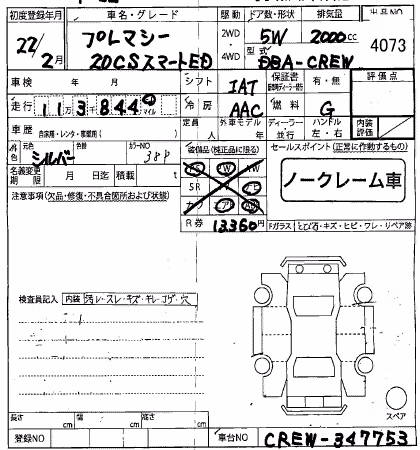 初度登録年月 車名・グレード 駆動 ドア数・形状 排気量 出品NO
22/2月 プレマシー 2WD 5W 2000cc 4073
20CSスマートED 4WD 型式 DBA-CREW
車検 年 月 シフト IAT 保証書 有・無 評価点
走行 11万3千844 km マイル 冷房 AAC 燃料 G
車歴 自家用・レンタ・事業用( ) 定員 外車モデル年 ディーラー・並行 ハンドル 左・右 内装評価
外色 元色 シルバー 色替 カラーNO 38P 装備品(純正品に限る) セールスポイント(正常に作動するもの)
名義変更期限 月 日迄 積載 t PS PW AW ノークレーム車
注意事項(欠品・修復・不具合箇所および状態) SR ナビ
カワ エアB
R券 13360円 Fガラス とび石・キズ・ヒビ・ワレ・リペア跡
検査員記入 内装 汚レ・スレ・キズ・キレ・コゲ・穴
スペア
長さ cm 幅 cm 高さ cm
登録NO 車台NO CREW-347753